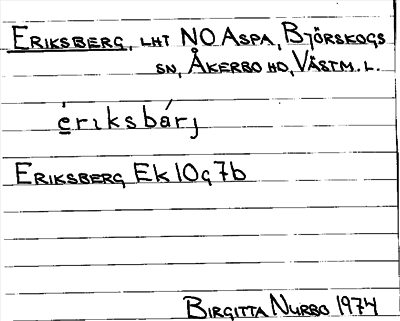 ERIKSBERG, LHT NO ASPA, BJÖRSKOGS
SN, ÅKERBO HD, VÄSTM. L.
èriksbárj
ERIKSBERG Ek 10g7b
BIRGITTA NURBO 1974